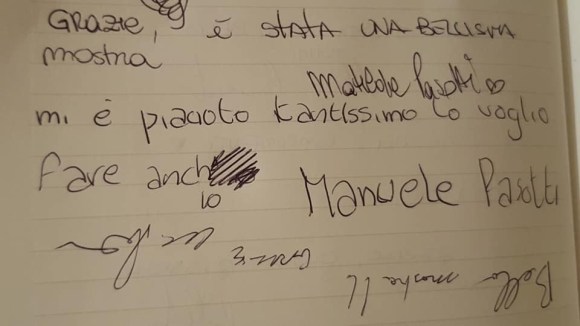 GRAZIE, è STATA UNA BELLISMA
mostra
Matilde Pasotti ♡
mi è piaciuto tantissimo lo voglio
fare anch
io
Manuele Pasotti
Bella mostra!!
GRAZIE